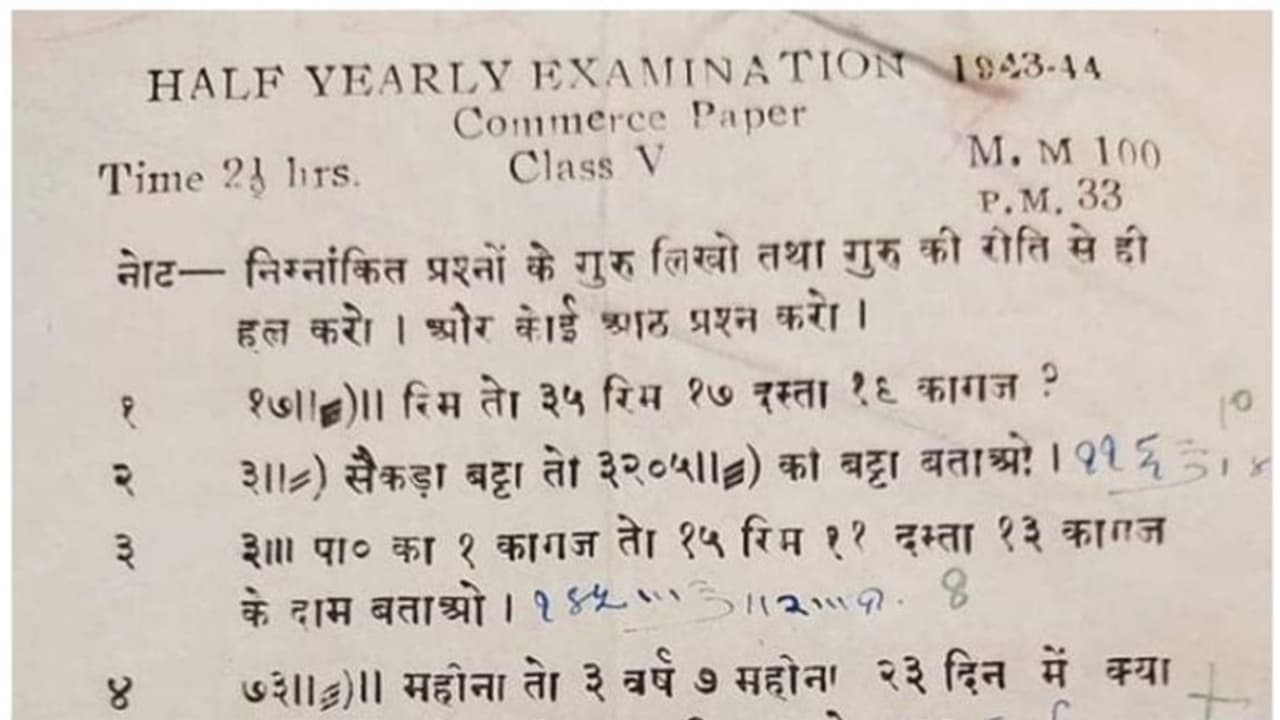 HALF YEARLY EXAMINATION 1943-44
Commerce Paper
Time 2½ hrs. Class V M. M 100
P. M. 33
नोट— निम्नांकित प्रश्नों के गुरु लिखो तथा गुरु की रीति से ही
हल करो । और कोई आठ प्रश्न करो ।
१ १७॥≡)॥ रिम तो ३५ रिम १७ दस्ता १६ कागज ?
10
२ ३॥=) सैकड़ा बट्टा तो ३२०५॥≡) का बट्टा बताओ ।
३ ३॥। पा० का १ कागज तो १५ रिम ११ दस्ता १३ कागज
के दाम बताओ । 8
४ ७३॥≡)॥ महीना तो ३ वर्ष ७ महीना २३ दिन में क्या